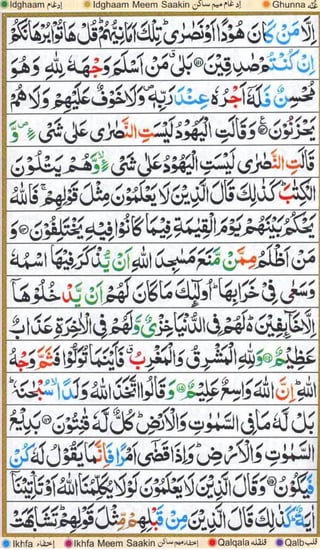 ادغام Idghaam Idghaam Meem Saakin ادغام میم ساکن Ghunna غنه
اِلَّا مَنْ كَانَ هُوْدًا اَوْ نَصٰرٰىؕ تِلْكَ اَمَانِيُّهُمْؕ قُلْ هَاتُوْا بُرْهَانَكُمْ
اِنْ كُنْتُمْ صٰدِقِيْنَ ۝۱۱۱ بَلٰىۗ مَنْ اَسْلَمَ وَجْهَهٗ لِلّٰهِ وَهُوَ
مُحْسِنٌ فَلَهٗۤ اَجْرُهٗ عِنْدَ رَبِّهٖ۪ وَلَا خَوْفٌ عَلَيْهِمْ وَلَا هُمْ
يَحْزَنُوْنَ ۝۱۱۲ وَقَالَتِ الْيَهُوْدُ لَيْسَتِ النَّصٰرٰى عَلٰى شَىْءٍ۪ وَّ
قَالَتِ النَّصٰرٰى لَيْسَتِ الْيَهُوْدُ عَلٰى شَىْءٍۙ وَّهُمْ يَتْلُوْنَ
الْكِتٰبَؕ كَذٰلِكَ قَالَ الَّذِيْنَ لَا يَعْلَمُوْنَ مِثْلَ قَوْلِهِمْۚ فَاللّٰهُ
يَحْكُمُ بَيْنَهُمْ يَوْمَ الْقِيٰمَةِ فِيْمَا كَانُوْا فِيْهِ يَخْتَلِفُوْنَ ۝۱۱۳ وَ
مَنْ اَظْلَمُ مِمَّنْ مَّنَعَ مَسٰجِدَ اللّٰهِ اَنْ يُّذْكَرَ فِيْهَا اسْمُهٗ
وَسَعٰى فِىْ خَرَابِهَاؕ اُولٰٓئِكَ مَا كَانَ لَهُمْ اَنْ يَّدْخُلُوْهَاۤ
اِلَّا خَآئِفِيْنَ۬ؕ لَهُمْ فِى الدُّنْيَا خِزْىٌ وَّلَهُمْ فِى الْاٰخِرَةِ عَذَابٌ
عَظِيْمٌ ۝۱۱۴ وَلِلّٰهِ الْمَشْرِقُ وَالْمَغْرِبُۗ فَاَيْنَمَا تُوَلُّوْا فَثَمَّ وَجْهُ
اللّٰهِؕ اِنَّ اللّٰهَ وَاسِعٌ عَلِيْمٌ ۝۱۱۵ وَقَالُوا اتَّخَذَ اللّٰهُ وَلَدًاۙ سُبْحٰنَهٗؕ
بَلْ لَّهٗ مَا فِى السَّمٰوٰتِ وَالْاَرْضِؕ كُلٌّ لَّهٗ قٰنِتُوْنَ ۝۱۱۶ بَدِيْعُ
السَّمٰوٰتِ وَالْاَرْضِؕ وَاِذَا قَضٰۤى اَمْرًا فَاِنَّمَا يَقُوْلُ لَهٗ كُنْ
فَيَكُوْنُ ۝۱۱۷ وَقَالَ الَّذِيْنَ لَا يَعْلَمُوْنَ لَوْلَا يُكَلِّمُنَا اللّٰهُ اَوْ تَاْتِيْنَاۤ
اٰيَةٌؕ كَذٰلِكَ قَالَ الَّذِيْنَ مِنْ قَبْلِهِمْ مِّثْلَ قَوْلِهِمْؕ تَشَابَهَتْ
اخفاء Ikhfa Ikhfa Meem Saakin اخفاء میم ساکن Qalqala قلقله Qalb قلب